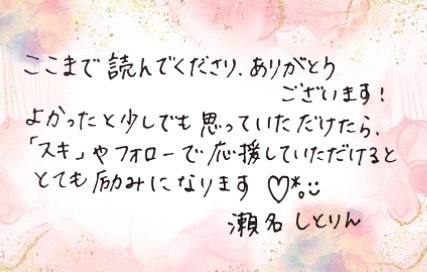 ここまで読んでくださり、ありがとう
ございます!
よかったと少しでも思っていただけたら、
「スキ」や フォローで応援していただけると
とても励みになります ♡*。ü
瀬名 しとりん